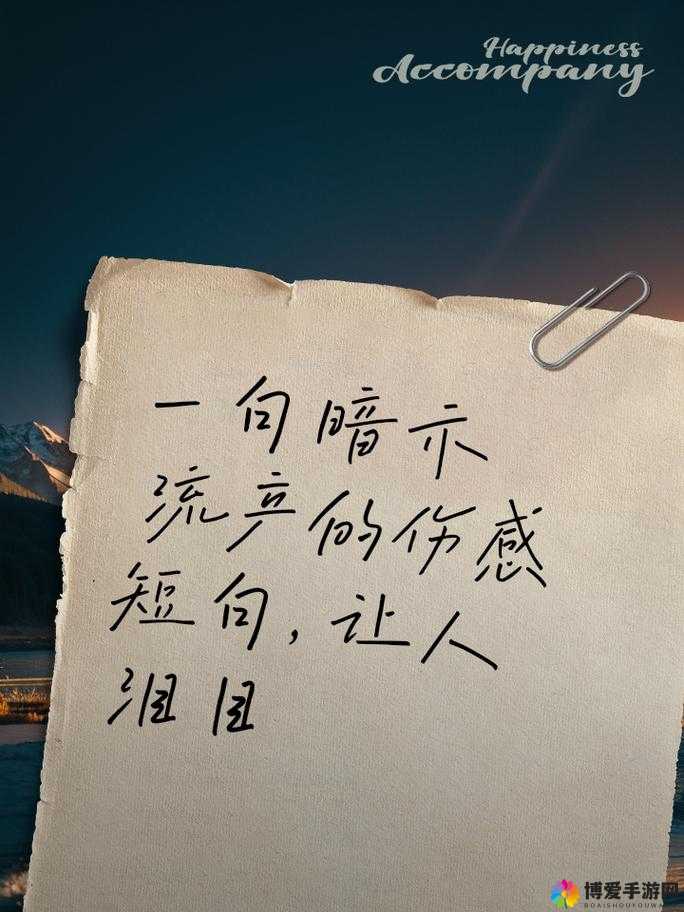 Happiness
Accompany
一句暗示
流产的伤感
短句，让人
泪目
博爱手游网
BOAISHOUYOUWANG